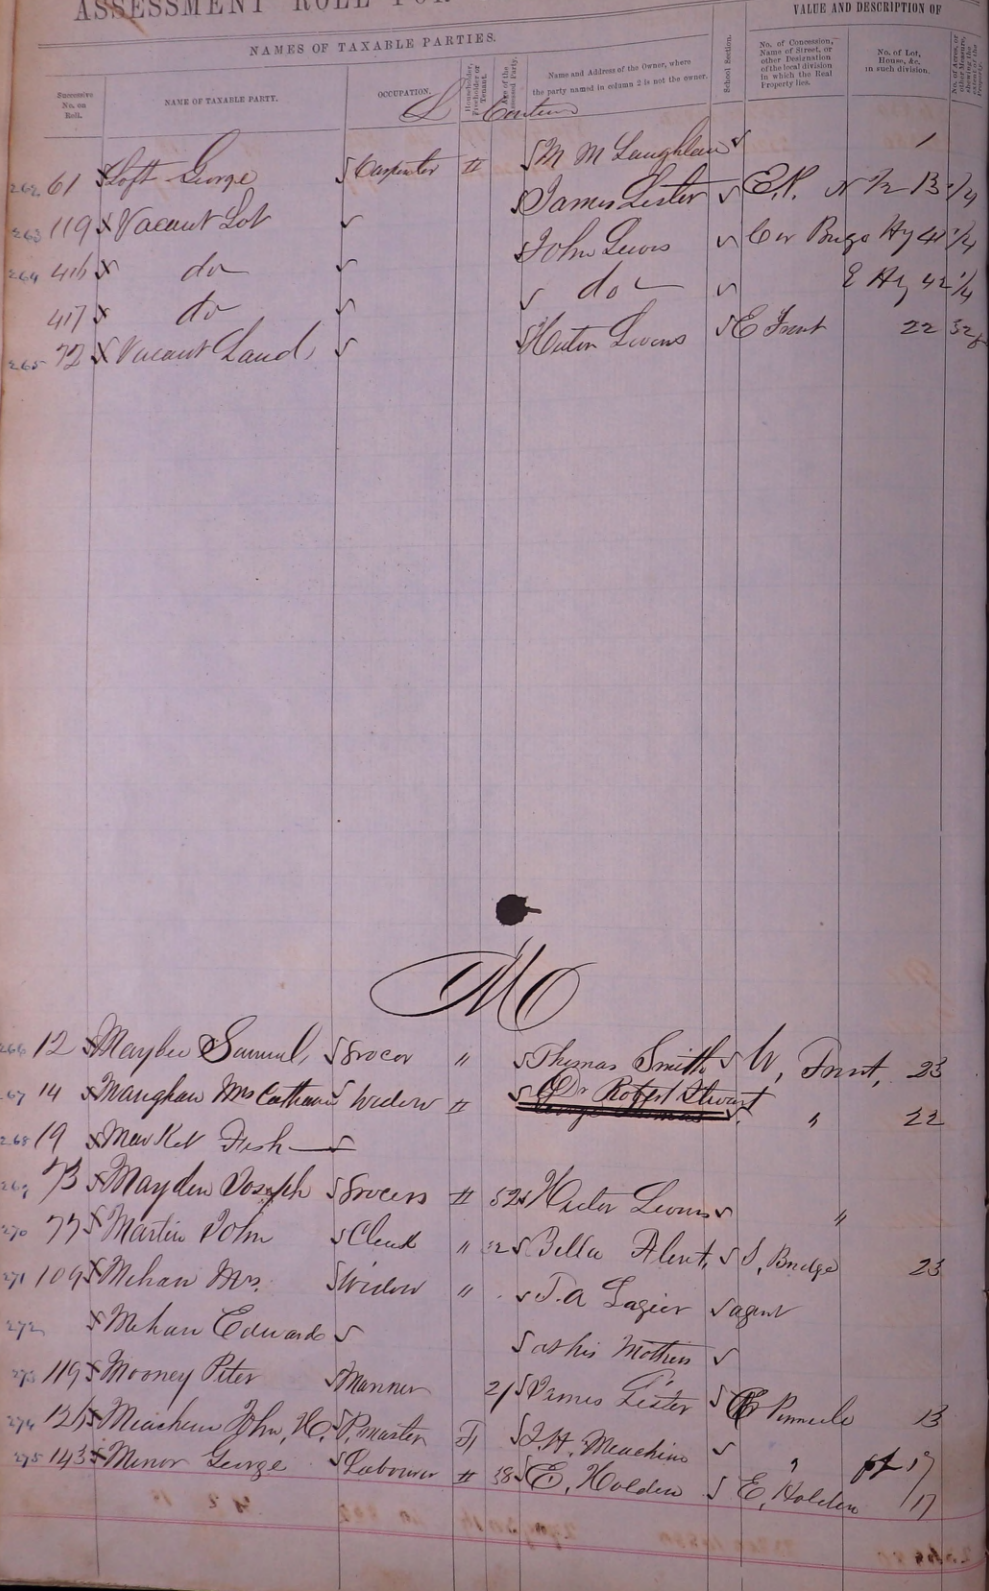 ASSESSMENT ROLL FOR
VALUE AND DESCRIPTION OF
NAMES OF TAXABLE PARTIES.
Successive No. on Roll.
NAME OF TAXABLE PARTY.
OCCUPATION.
Householder, Freeholder or Tenant.
Age of the Assessed Party.
Name and Address of the Owner, where the party named in column 2 is not the owner.
School Section.
No. of Concession, Name of Street, or other Designation of the local division in which the Real Property lies.
No. of Lot, House, &c. in such division.
L
262 61 Loft George Carpenter H M McLaughlan 1
263 119 Vacant Lot James Lester E.P. N 1/2 13 1/4
264 416 do John Lewis Cor Brige Hy 41 1/4
417 do do E Hy 42 1/4
265 72 Vacant Land E Front 22
M
266 12 Maybee Samuel Grocer " Thomas Smith W, Front, 23
267 14 Maughan Mrs Catherine Widow H Dr Robert Stewart " 22
268 19 Market Fish
269 73 Mayden Joseph Grocers H 52 "
270 77 Martin John Clerk " Bella Flint S, Bridge 23
271 109 Mehan Mrs. Widow " T. A Lazier agent
272 Mehan Edward at his Mothers
273 119 Mooney Peter Mariner 21 James Lester E Pinnacle 13
274 Meachem John, H. P. master F J. H. Meachem " pt 17
275 143 Minor George Labourer H 38 E. Holden E, Holden 17